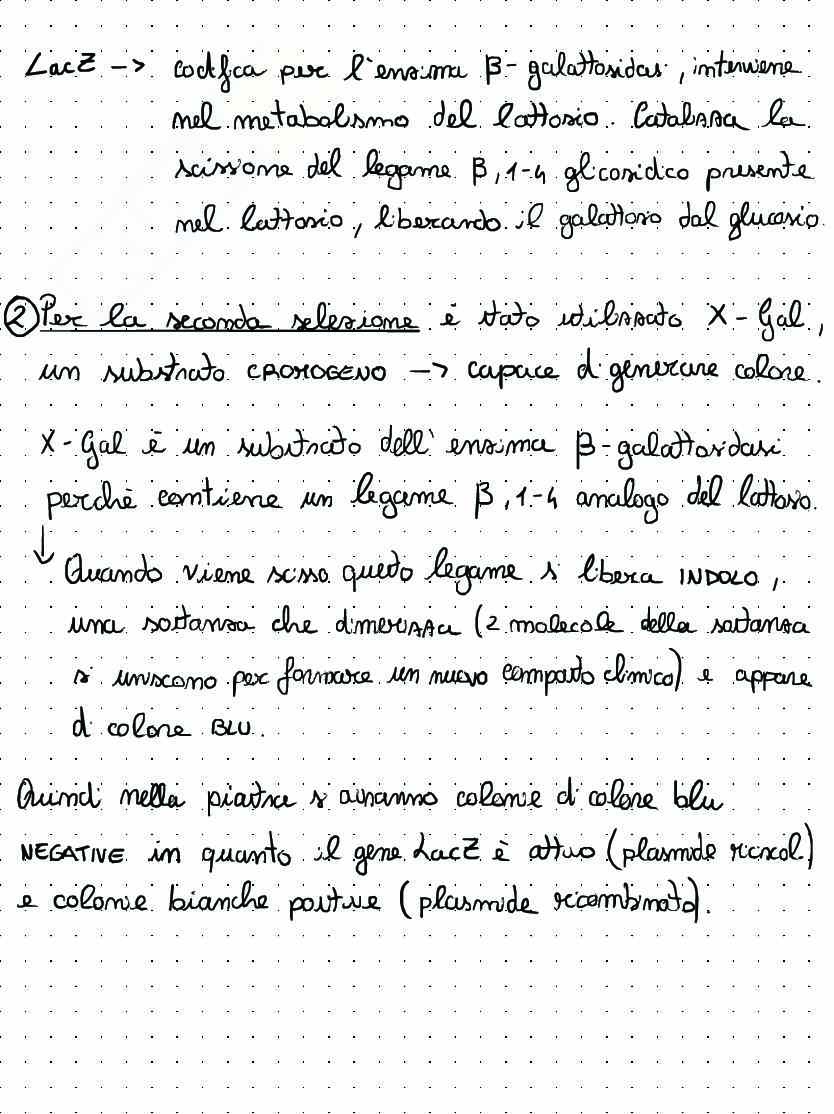 LacZ -> codifica per l'enzima β-galattosidasi, interviene
nel metabolismo del lattosio. Catalizza la
scissione del legame β,1-4 glicosidico presente
nel lattosio, liberando il galattosio dal glucosio.
② Per la seconda selezione è stato utilizzato X-Gal,
un substrato CROMOGENO -> capace di generare colore.
X-Gal è un substrato dell'enzima β-galattosidasi
perchè contiene un legame β,1-4 analogo del lattosio.
↓ Quando viene scisso questo legame si libera INDOLO,
una sostanza che dimerizza (2 molecole della sostanza
si uniscono per formare un nuovo composto chimico) e appare
di colore BLU.
Quindi nella piastra si avranno colonie di colore blu
NEGATIVE in quanto il gene LacZ è attivo (plasmide ricircol)
e colonie bianche positive (plasmide ricombinato).